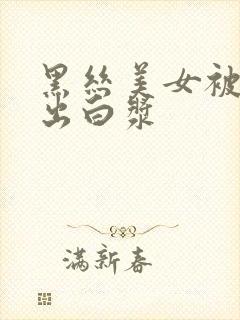 黑丝美女被
出白漿
满新春